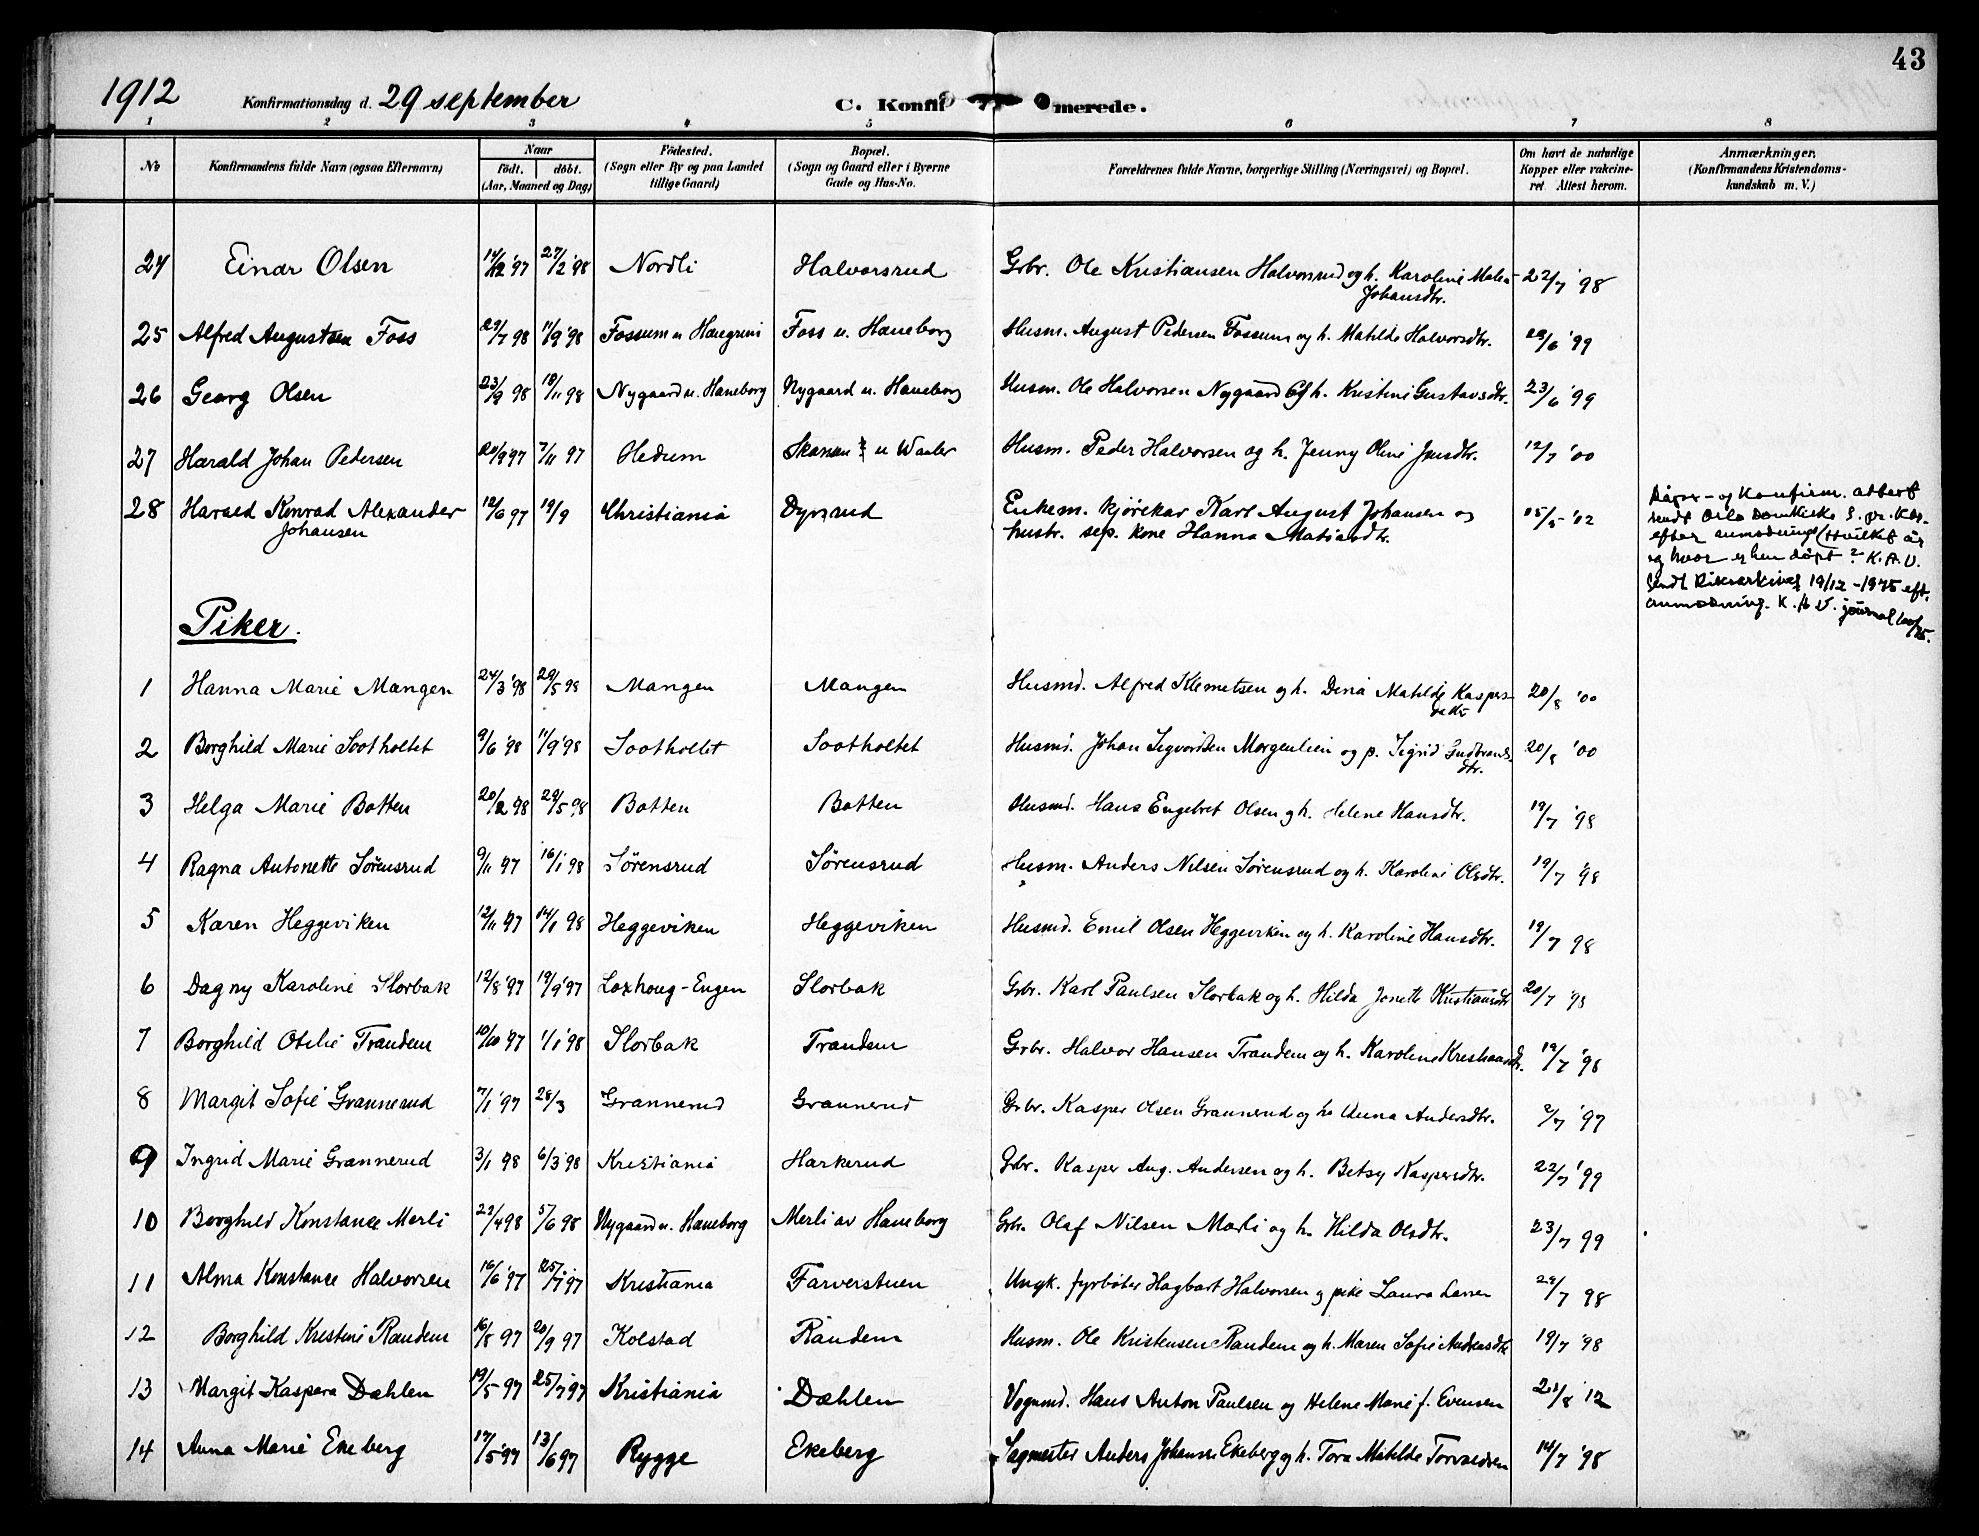 43
1912 Konfirmationsdag d. 29 september C. Konfi merede.
1 2 3 4 5 6 7 8
No Konfirmandens fulde Navn (ogsaa Efternavn) Naar født. døbt. (Aar, Maaned og Dag) Fødested. (Sogn eller By og paa Landet tillige Gaard) Bopæl. (Sogn og Gaard eller i Byerne Gade og Hus-No. Forældrenes fulde Navne, borgerlige Stilling (Næringsvei) og Bopæl. Om havt de naturlige Kopper eller vakcineret Attest herom. Anmærkninger. (Konfirmandens Kristendomskundskab m. V.)
24 Einar Olsen 14/12 '97 27/2 '98 Nordli Halvorsrud Grbr. Ole Kristiansen Halvorsrud og h. Karoline Johansdtr. 22/7 '98
25 Alfred Augustsen Foss 29/7 98 11/9 '98 Fossum u Foss u. Haneborg Husm. August Pedersen Fossum og h. Matilde Halvorsdtr. 28/6 '99
26 Georg Olsen 23/9 98 18/11 98 Nygaard u. Haneborg Nygaard u. Haneborg Husm. Ole Halvorsen Nygaard og h. Kristine Gustavsdtr. 23/6 '99
27 Harald Johan Pedersen 7/11 97 Hedum u Waaler Husm. Peder Halvorsen og h. Jenny Oline Jensdtr. 12/7 '00
28 Harald Konrad Alexander Johansen 12/6 97 19/9 Christiania Dyrsrud Enkem. kjørekar Karl August Johansen og hustr. sep. kone Hanna Matiasdtr. 15/5 '12
Dåps- og Konfirm. attest
sendt Oslo Domkirke
efter anmodning (Hvilket år
og hvor er hen døpt? K.A.V.
Sendt Riksarkivet 19/12-1975 eft.
anmodning. K.A.V. journal
Piker.
1 Hanna Marie Mangen 24/3 '98 29/5 98 Mangen Mangen Husmd. Alfred Klemetsen og h. Dina Matilde Kaspers- 20/8 '00
2 Borghild Marie Sootholtet 9/6 '98 11/9 '98 Sootholtet Sootholtet Husmd. Johan Sigvardsen Morgenlien og p. Sigrid Gudbrands- dtr. 20/8 '00
3 Helga Marie Botten 20/2 98 29/5 98 Botten Botten Husmd. Hans Engebret Olsen og h. Helene Hansdtr. 19/7 '98
4 Ragna Antonette Sørensrud 9/11 97 16/1 98 Sørensrud Sørensrud Husm. Anders Nilsen Sørensrud og h. Karoline Olsdtr. 19/7 '98
5 Karen Heggeviken 12/11 97 14/1 98 Heggeviken Heggeviken Husmd. Emil Olsen Heggeviken og h. Karoline Hansdtr. 19/7 98
6 Dagny Karoline Slorbak 12/8 '97 19/9 '97 Loxhoug-Engen Slorbak Grbr. Karl Paulsen Slorbak og h. Hilda Jonette Kristiansdtr 20/7 '98
7 Borghild Otilie Trandem 10/10 '97 1/1 '98 Slorbak Trandem Grbr. Halvor Hansen Trandem og h. Karoline Kristiansdtr. 19/7 '98
8 Margit Sofie Grannerud 7/1 '97 28/3 Grannerud Grannerud Grbr. Kasper Olsen Grannerud og h. Anna Andersdtr. 2/7 '97
9 Ingrid Marie Grannerud 3/1 98 6/3 '98 Kristiania Harkerud Grbr. Kasper Aug. Andersen og h. Betsy Kaspersdtr. 22/7 '99
10 Borghild Konstance Merli 22/4 98 5/6 98 Nygaard u. Haneborg Merli av Haneborg Grbr. Olaf Nilsen Merli og h. Hilda Olsdtr. 23/7 99
11 Alma Konstance Halvorsen 16/6 '97 25/7 '97 Kristiania Farverstuen Ungk. fyrbøter Hagbart Halvorsen og pike Laura Larsen 29/7 98
12 Borghild Kristine Randem 16/8 97 20/9 97 Kolstad Randem Husm. Ole Kristensen Randem og h. Maren Sofie Andersdtr 19/7 '98
13 Margit Kaspara Dæhlen 19/5 97 25/7 97 Kristiania Dæhlen Vognmd. Hans Anton Paulsen og Helene Marie f. Evensen 21/8 12
14 Anna Marie Ekeberg 17/5 97 13/6 97 Rygge Ekeberg Sagmester Anders Johansen Ekeberg og h. Tora Matilde Torvaldsen 14/7 '98